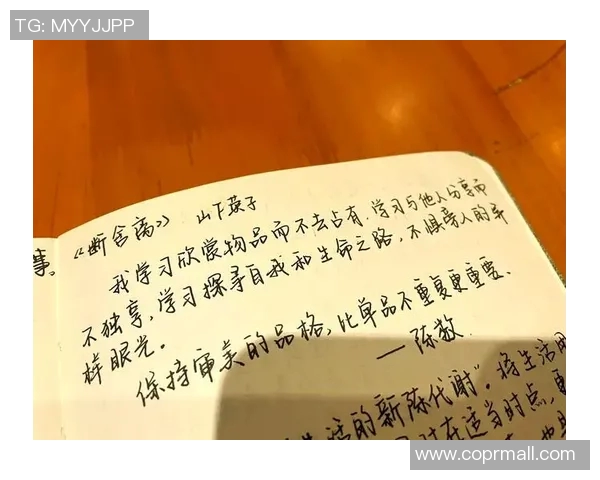 TG: MYYJJPP
事。
《断舍离》 山下英子
我学习欣赏物品而不去占有.学习与他人分享而
不独享,学习探寻自我和生命之路,不惧旁人的异
样眼光。
保持审美的品格,比单品不重复更重要.
——陈数
活的新陈代谢”。将生活用
在适当时点,更
www.coprmall.com